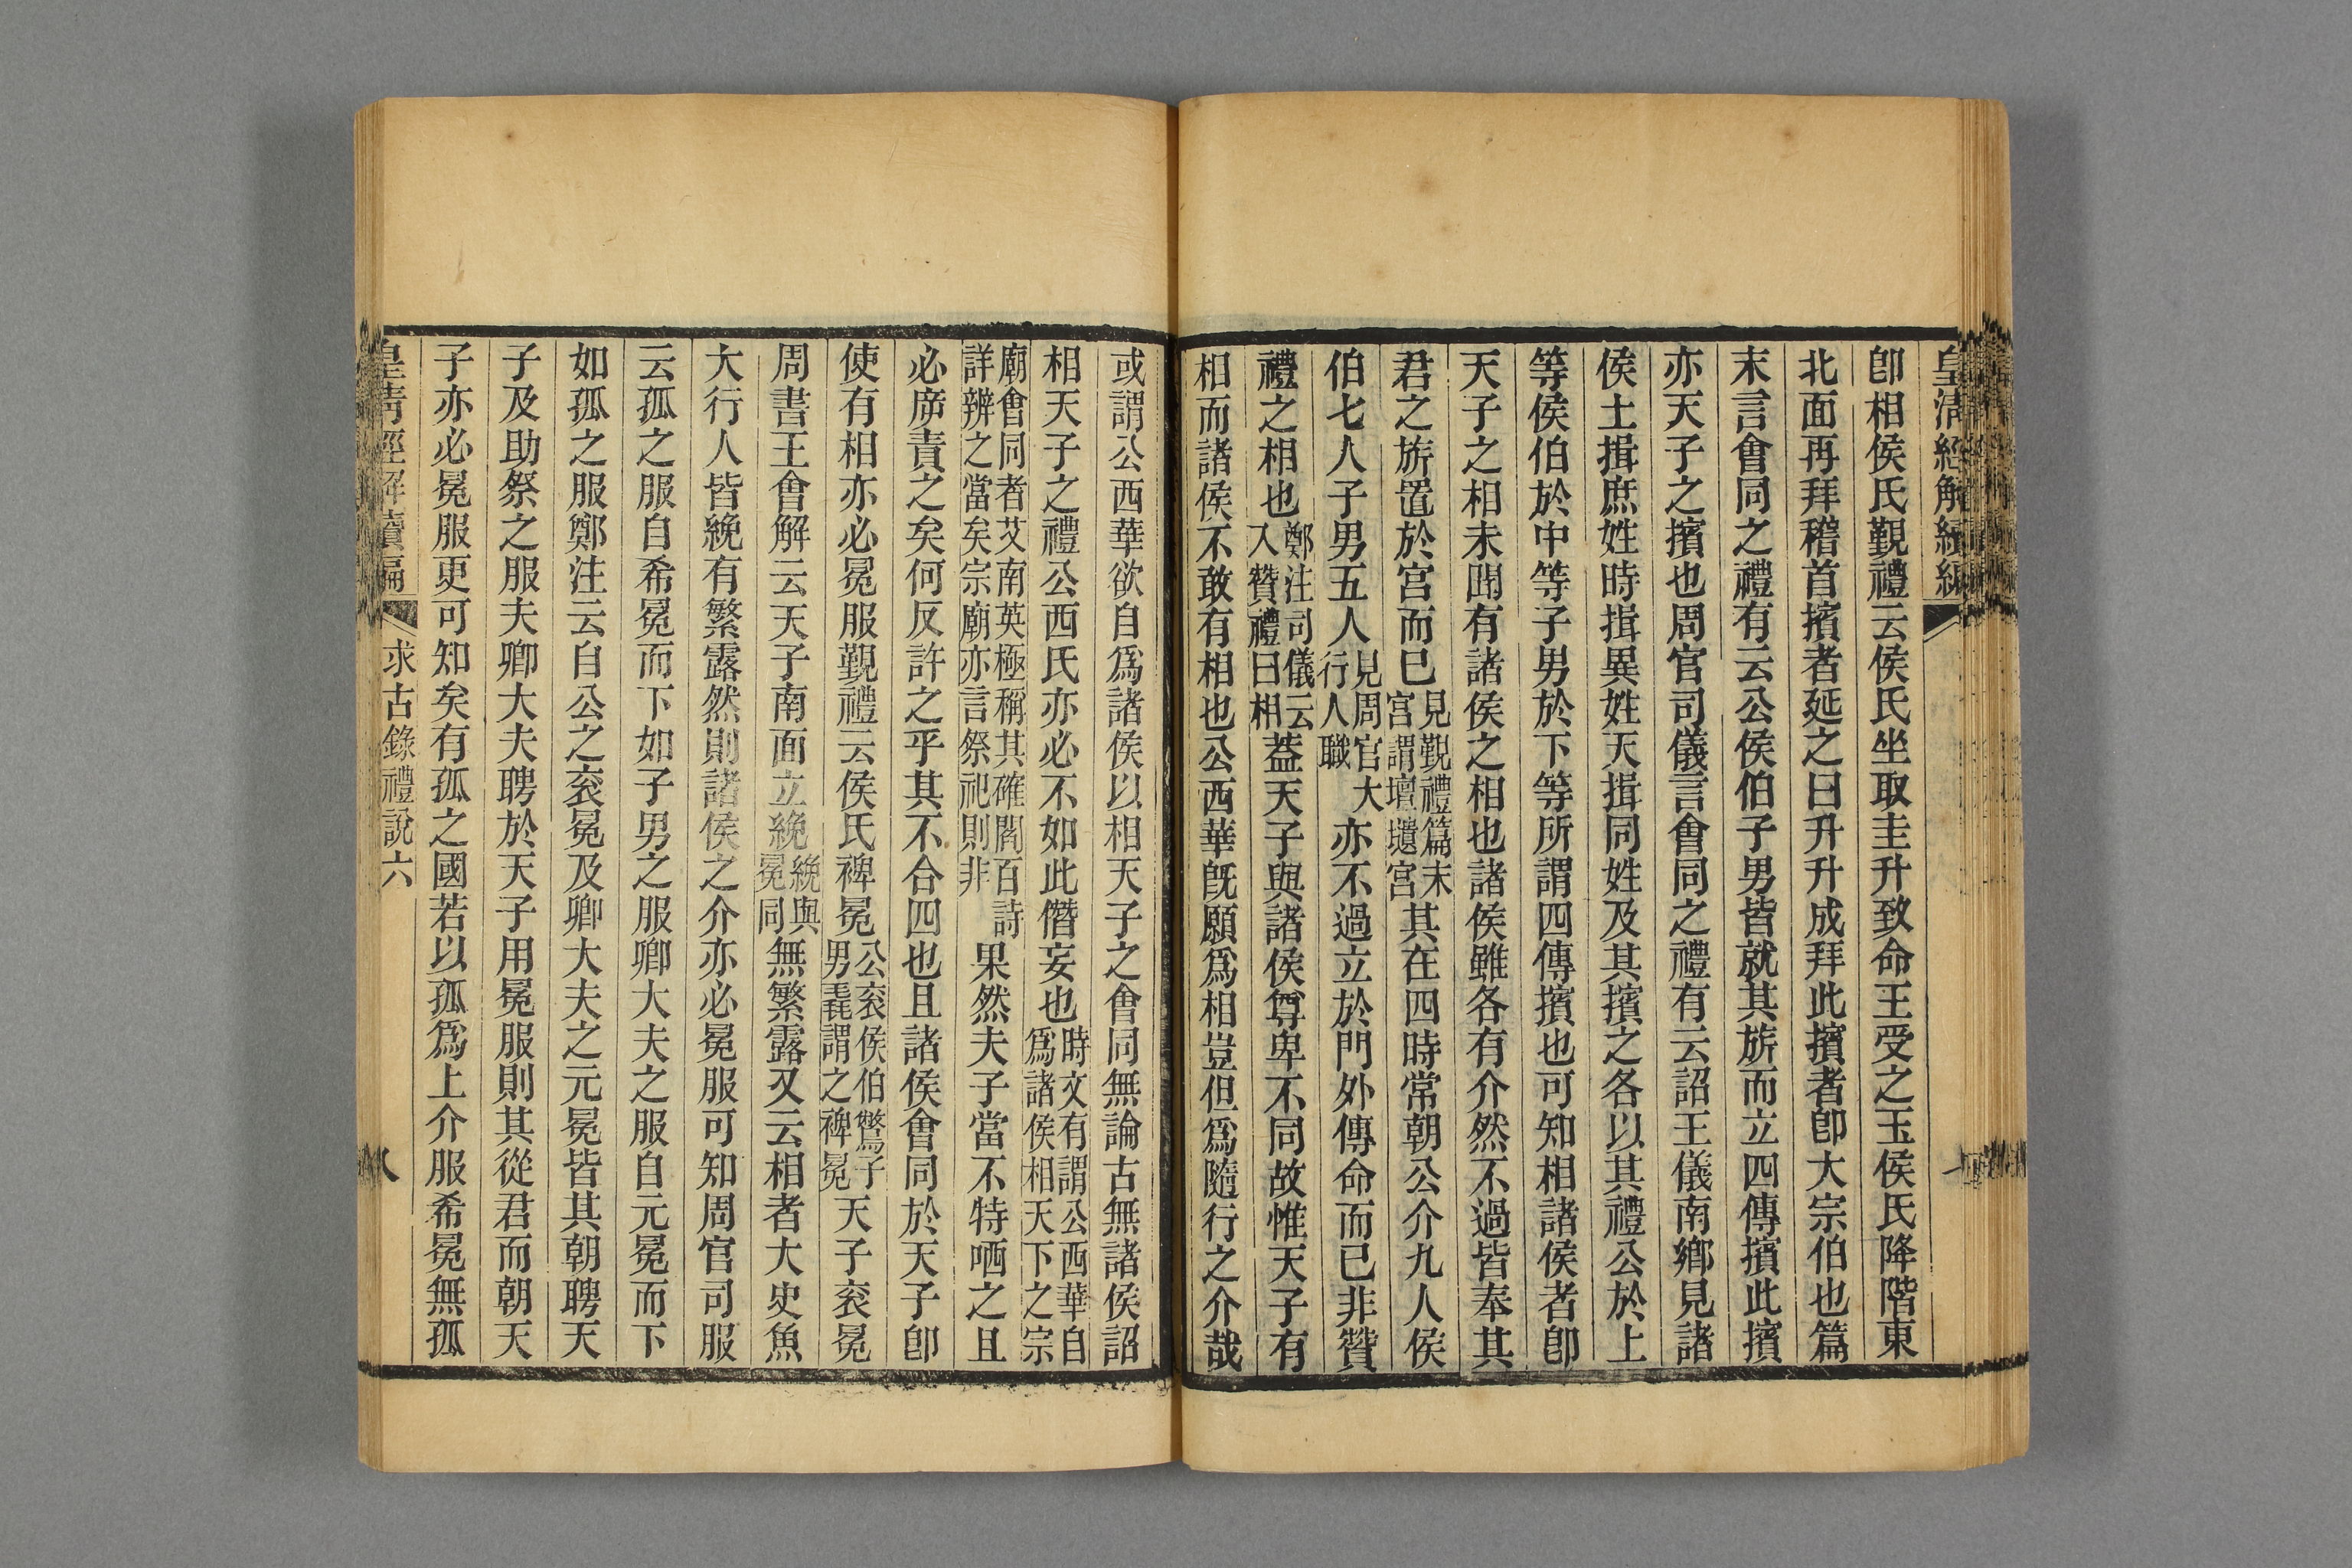 皇清經解續編
卽相侯氏覲禮云侯氏坐取圭升致命王受之玉侯氏降階東
北面再拜稽首擯者延之曰升升成拜此擯者卽大宗伯也篇
末言會同之禮有云公侯伯子男皆就其旂而立四傳擯此擯
亦天子之擯也周官司儀言會同之禮有云詔王儀南鄉見諸
侯土揖庶姓時揖異姓天揖同姓及其擯之各以其禮公於上
等侯伯於中等子男於下等所謂四傳擯也可知相諸侯者卽
天子之相未聞有諸侯之相也諸侯雖各有介然不過皆奉其
君之旂置於宮而已見覲禮篇末宮謂壇壝宮其在四時常朝公介九人侯
伯七人子男五人見周官大行人職亦不過立於門外傳命而已非贊
禮之相也鄭注司儀云入贊禮曰相葢天子與諸侯尊卑不同故惟天子有
相而諸侯不敢有相也公西華旣願爲相豈但爲隨行之介哉
或謂公西華欲自爲諸侯以相天子之會同無論古無諸侯詔
相天子之禮公西氏亦必不如此僭妄也時文有謂公西華自爲諸侯相天下之宗
廟會同者艾南英極稱其確閻百詩詳辨之當矣宗廟亦言祭祀則非果然夫子當不特哂之且
必席責之矣何反許之乎其不合四也且諸侯會同於天子卽
使有相亦必冕服覲禮云侯氏裨冕公衮侯伯鷩子男毳謂之裨冕天子衮冕
周書王會解云天子南面立絻絻與冕同無繁露又云相者大史魚
大行人皆絻有繁露然則諸侯之介亦必冕服可知周官司服
云孤之服自希冕而下如子男之服卿大夫之服自元冕而下
如孤之服鄭注云自公之衮冕及卿大夫之元冕皆其朝聘天
子及助祭之服夫卿大夫聘於天子用冕服則其從君而朝天
子亦必冕服更可知矣有孤之國若以孤爲上介服希冕無孤
皇清經解續編
求古錄禮說六
八